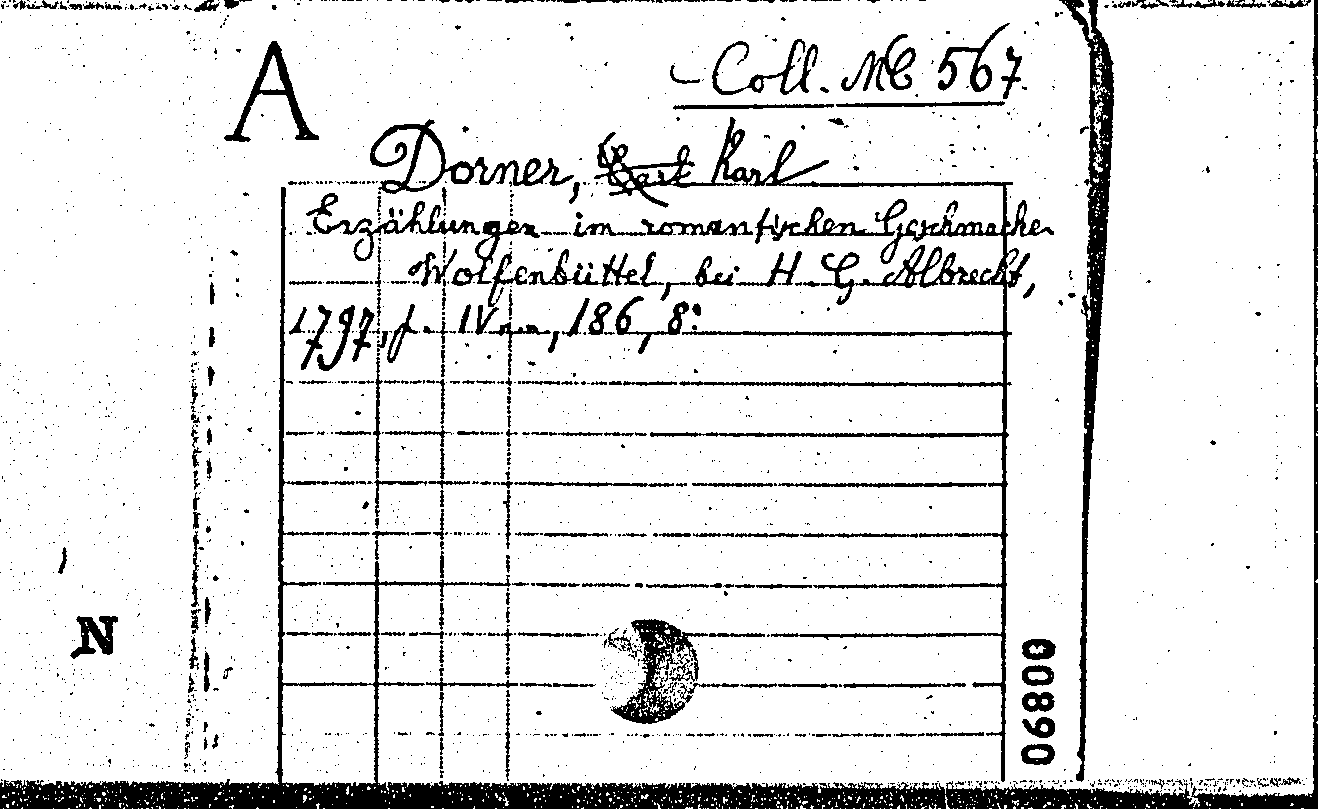 A
Coll. MC 567
Dorner, Karl
Erzählungen im romantischen Geschmacke
Wolfenbüttel, bei H. G. Albrecht,
1797, f. IV, 186, 8:
N
06800